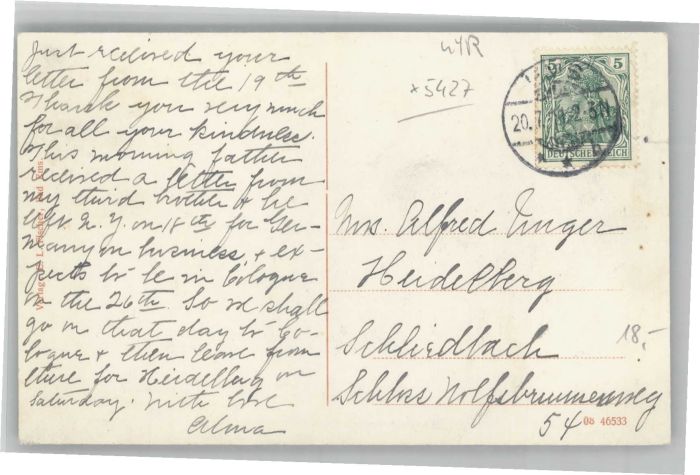 Just received your
letter from the 19th
Thank you very much
for all your kindness.
This morning father
received a letter from
my third brother & he
left N. Y. on 18th for Ger-
many on business, & ex-
pects to be in Cologne
on the 26th. So we shall
go on that day to Co-
logne & then leave from
there for Heidelberg on
Saturday. With love
Alma
44R
*5427
5 5
DEUTSCHES REICH
20.7. 2-3N
Mrs. Alfred Unger
Heidelberg
Schlierbach
Schloss Wolfsbrunnenweg
54
18.-
08 46533
Verlag Bad Ems